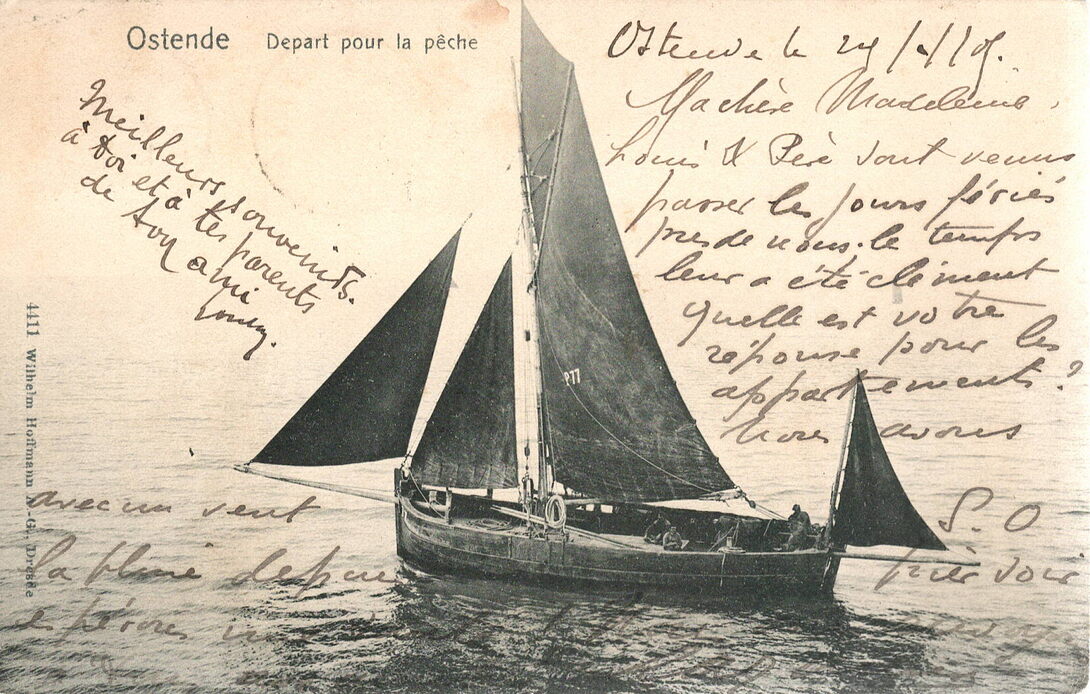 Ostende Depart pour la pêche
Ostende le 24/4/05.
Ma chère Madeleine,
Louis & Père sont venus
passer les jours fériés
près de nous. le temps
leur a été clément
quelle est votre
réponse pour les
appartements?
Nous avons
avec un vent S. O
la pluie depuis hier soir
espérons
Meilleurs souvenirs
à toi et à tes parents
de ton ami
P77
4411 Wilhelm Hoffmann A.-G., Dresde